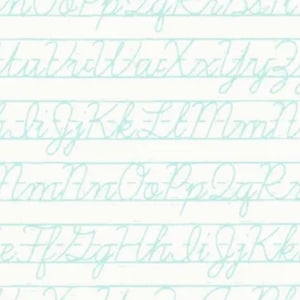 n Oo Pp Qq Rr
t Uu Vv Ww Xx Yy Z
h Ii Jj Kk Ll Mm N
Mm Nn Oo Pp Qq R
e Ff Gg Hh Ii Jj Kk